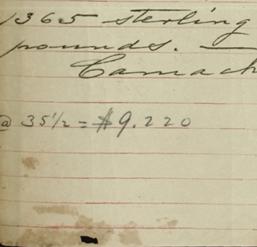 1365 sterling
pounds. —
Camach
@ 35 1/2 = $9.220